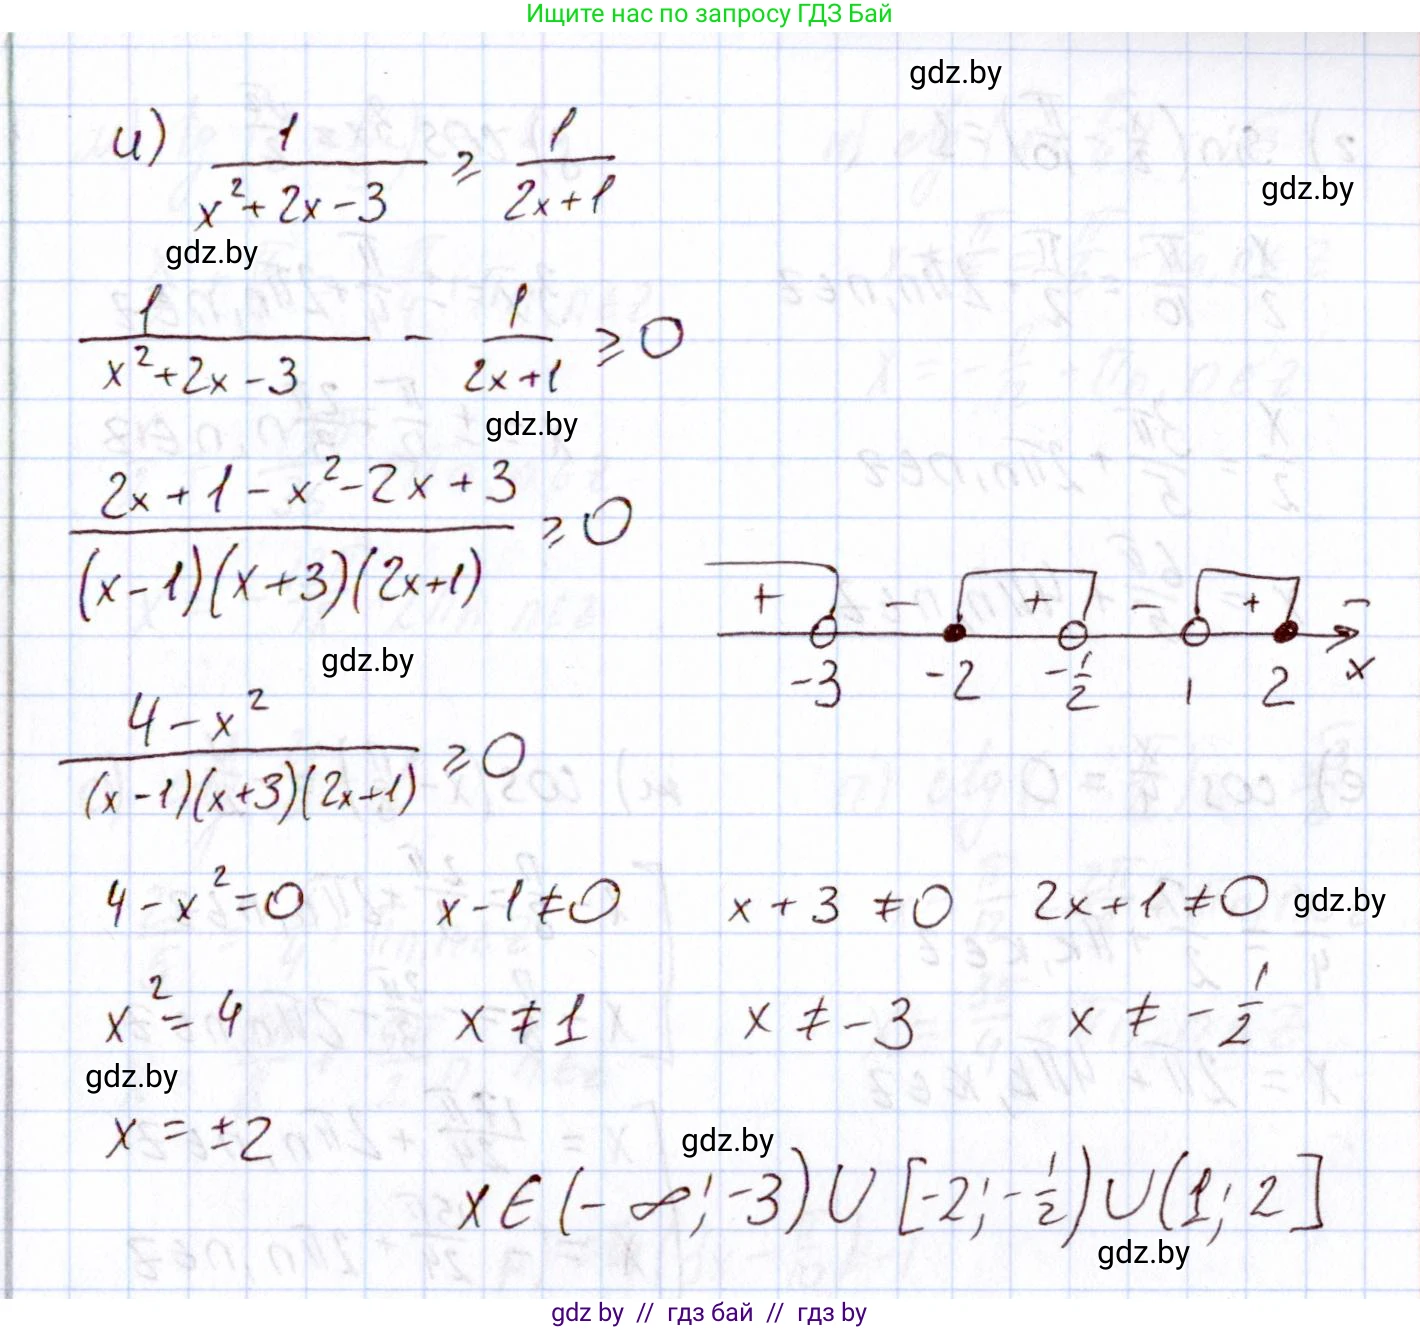 Ищите нас по запросу ГДЗ Бай
gdz.by
и) 1/(x²+2x-3) ⩾ 1/(2x+1)
gdz.by
gdz.by
1/(x²+2x-3) - 1/(2x+1) ⩾ 0
gdz.by
(2x+1-x²-2x+3)/((x-1)(x+3)(2x+1)) ⩾ 0
+ - + - + -
-3 -2 -1/2 1 2 x
gdz.by
(4-x²)/((x-1)(x+3)(2x+1)) ⩾ 0
4-x²=0 x-1≠0 x+3≠0 2x+1≠0
gdz.by
x²=4 x≠1 x≠-3 x≠-1/2
gdz.by
x=±2
gdz.by
x∈(-∞;-3)∪[-2;-1/2)∪(1;2]
gdz.by
gdz by // гдз бай // гдз by